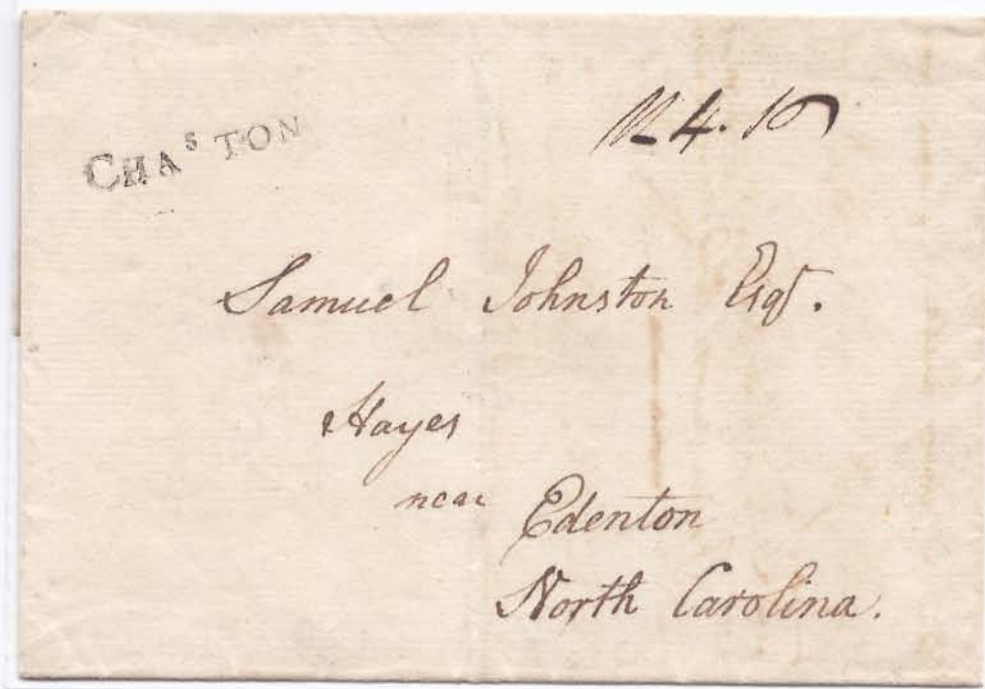 CHAˢTON
4.16
Samuel Johnston Esqʳ.
Hayes
near Edenton
North Carolina.